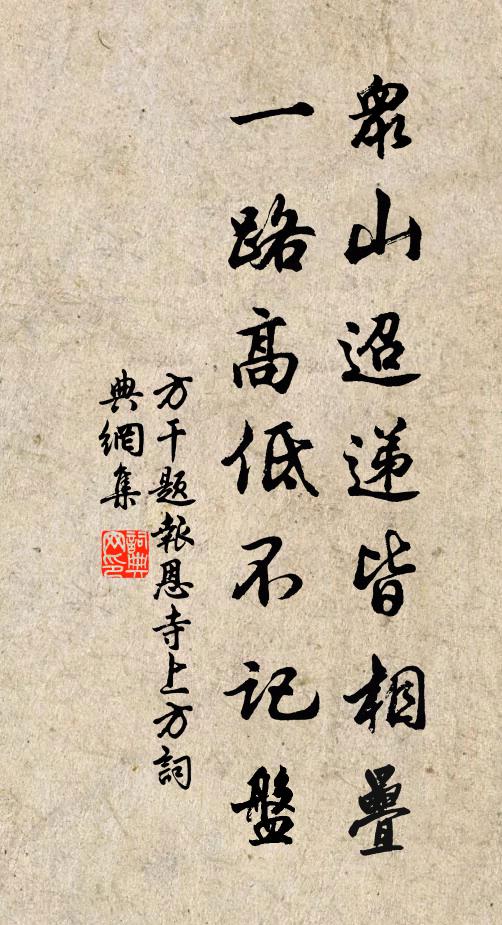 眾山迢遞皆相疊
一路高低不記盤
方干題報恩寺上方詞
典網集
詞典網印